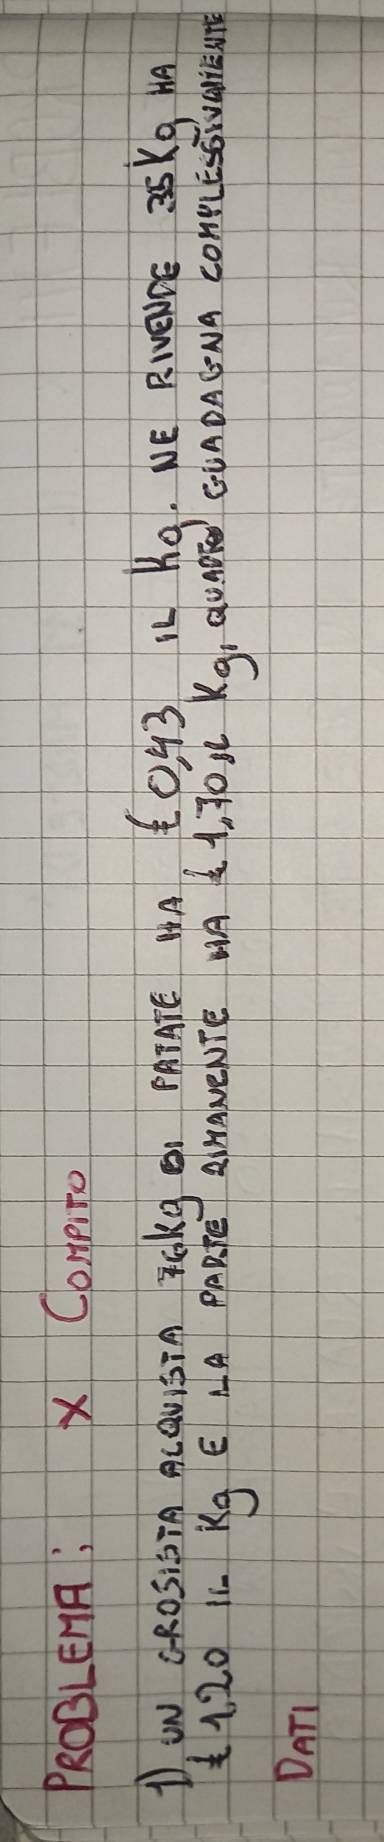 PROBLEMA: X COMPITO
1) UN GROSISTA ACQUISTA 76kg DI PATATE HA £ 0,43 IL Kg. NE RIVENDE 35Kg HA
£ 1,20 IL Kg E LA PARTE RIMANENTE HA £ 1,70 IL Kg, QUANTO GUADAGNA COMPLESSIVAMENTE
DATI